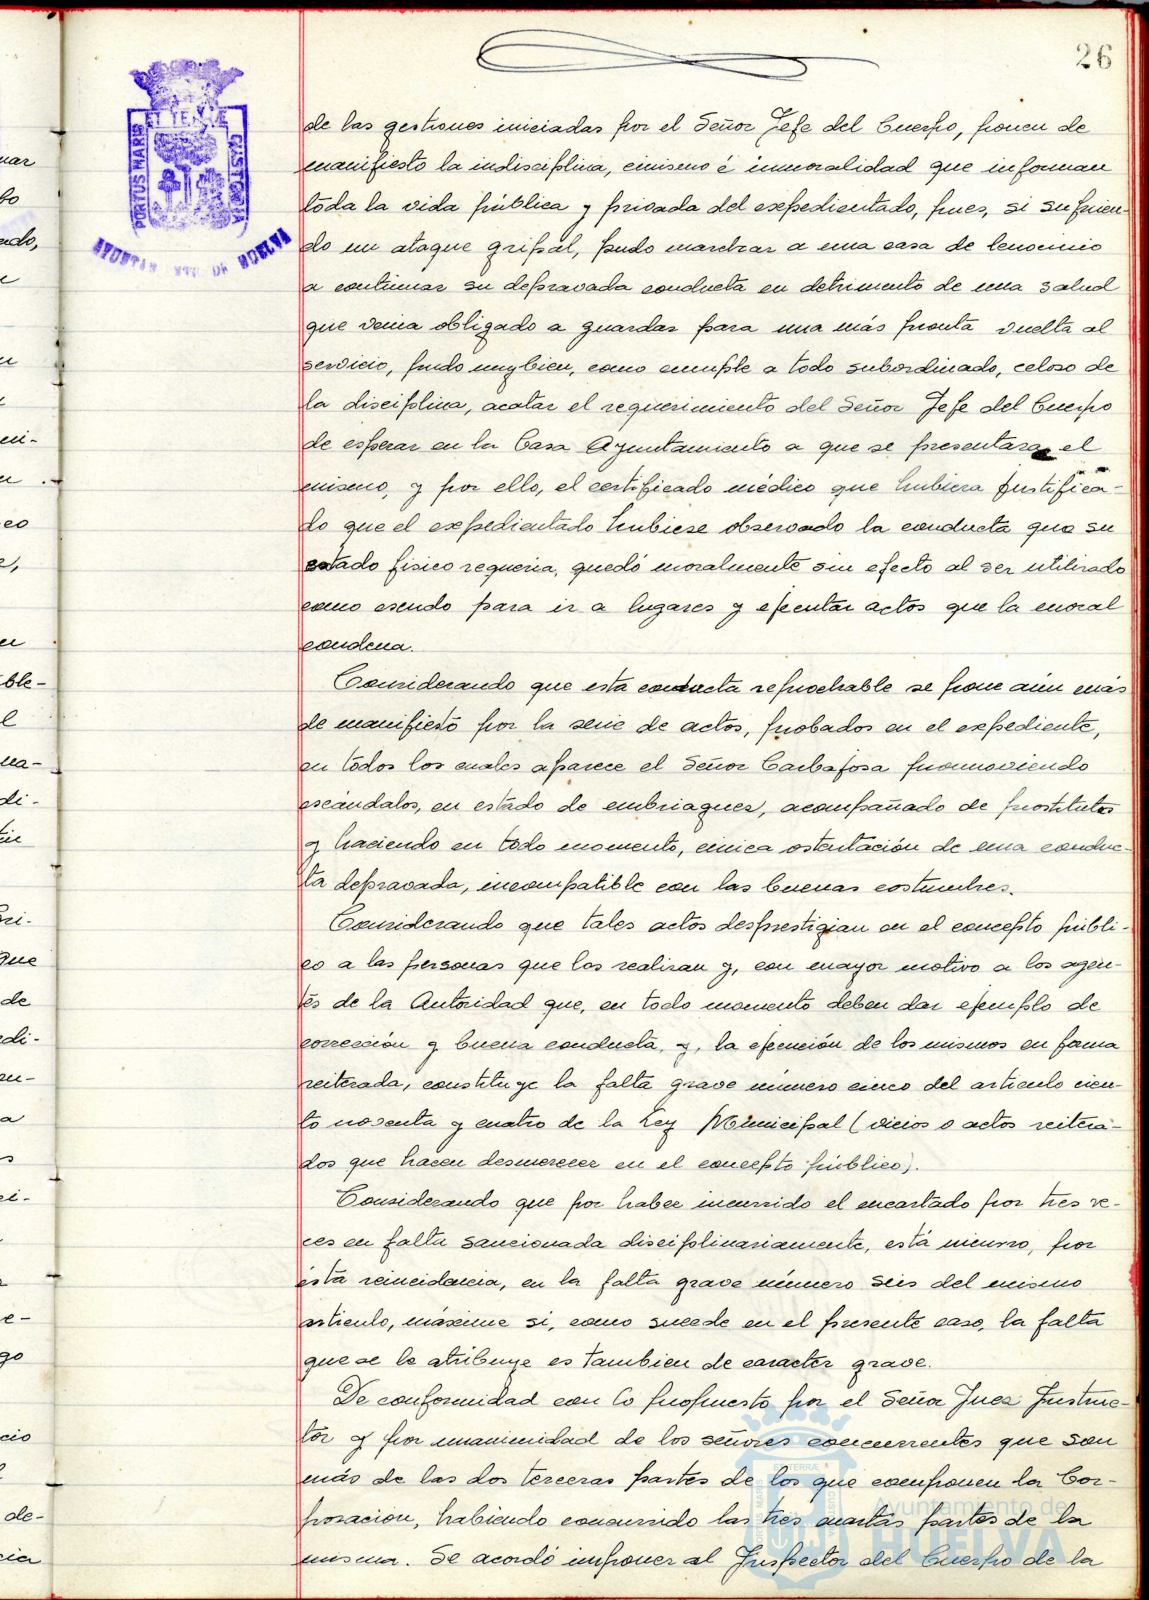 26
PORTUS MARIS ET TERRÆ CUSTODIA
AYUNTAMIENTO DE HUELVA
de las gestiones iniciadas por el Señor Jefe del Cuerpo, ponen de
manifiesto la indisciplina, cinismo é inmoralidad que informan
toda la vida pública y privada del expedientado, pues, si sufrien-
do un ataque gripal, pudo marchar a una casa de lenocinio
a continuar su depravada conducta en detrimento de una salud
que venia obligado a guardar para una más pronta vuelta al
servicio, pudo muy bien, como cumple a todo subordinado, celoso de
la disciplina, acatar el requerimiento del Señor Jefe del Cuerpo
de esperar en la Casa Ayuntamiento a que se presentara el
mismo, y por ello, el certificado médico que hubiera justifica-
do que el expedientado hubiese observado la conducta que su
estado fisico requeria, quedó moralmente sin efecto al ser utilizado
como escudo para ir a lugares y ejecutar actos que la moral
condena.
Considerando que esta conducta reprochable se pone aún más
de manifiesto por la serie de actos, probados en el expediente,
en todos los cuales aparece el Señor Carbajosa promoviendo
escándalos, en estado de embriaguez, acompañado de prostitutas
y haciendo en todo momento, cinica ostentación de una conduc-
ta depravada, incompatible con las buenas costumbres.
Considerando que tales actos desprestigian en el concepto públi-
co a las personas que los realizan y, con mayor motivo a los agen-
tes de la Autoridad que, en todo momento deben dar ejemplo de
corrección y buena conducta, y, la ejecución de los mismos en forma
reiterada, constituye la falta grave número cinco del articulo cien-
to noventa y cuatro de la Ley Municipal (vicios o actos reitera-
dos que hacen desmerecer en el concepto público).
Considerando que por haber incurrido el encartado por tres ve-
ces en falta sancionada disciplinariamente, está incurso, por
ésta reincidencia, en la falta grave número seis del mismo
articulo, máxime si, como sucede en el presente caso, la falta
que se le atribuye es tambien de caracter grave.
De conformidad con lo propuesto por el Señor Juez Instruc-
tor y por unanimidad de los señores concurrentes que son
más de las dos terceras partes de los que componen la Cor-
poracion, habiendo concurrido las tres cuartas partes de la
misma. Se acordó imponer al Inspector del Cuerpo de la
Ayuntamiento de
HUELVA